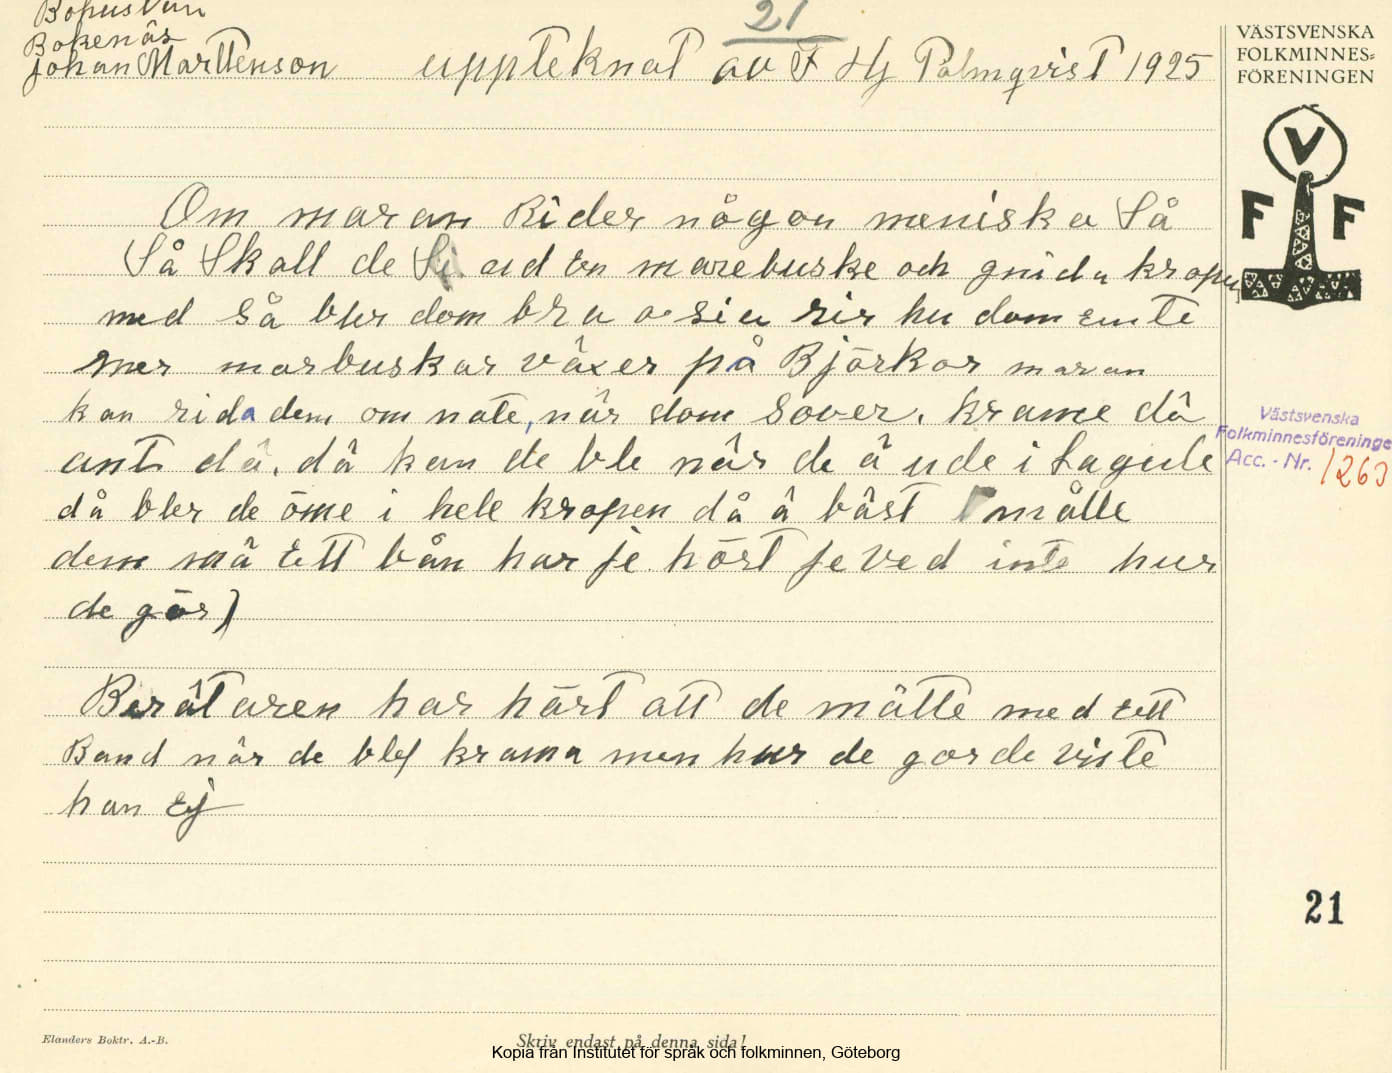 21
Bohuslän
Bokenäs
Johan Marttenson uppteknat av F Hj Palmqvist 1925
VÄSTSVENSKA
FOLKMINNES=
FÖRENINGEN
V
F F
Om maran Rider någon meniska Så
Så Skall de aid En marebuske och gnida kropen
med Så bler dom bra o sia rir hu dom Einte
mer marbuskar växer på Björkor maran
kan rida dem om nate, når dom Sover. krame då
ant då. då kan de ble når de å ude i Lagule
då bler de öme i hele kropen då å båst målle
dem må Ett bån har je hört je ved inte hur
de gör)
Beråtaren har hört att de måtte med Ett
Band når de blef krama men hur de gorde viste
han Ej
Västsvenska
Folkminnesföreningen
Acc. - Nr. 1263
21
Elanders Boktr. A.-B.
Skriv endast på denna sida!
Kopia från Institutet för språk och folkminnen, Göteborg